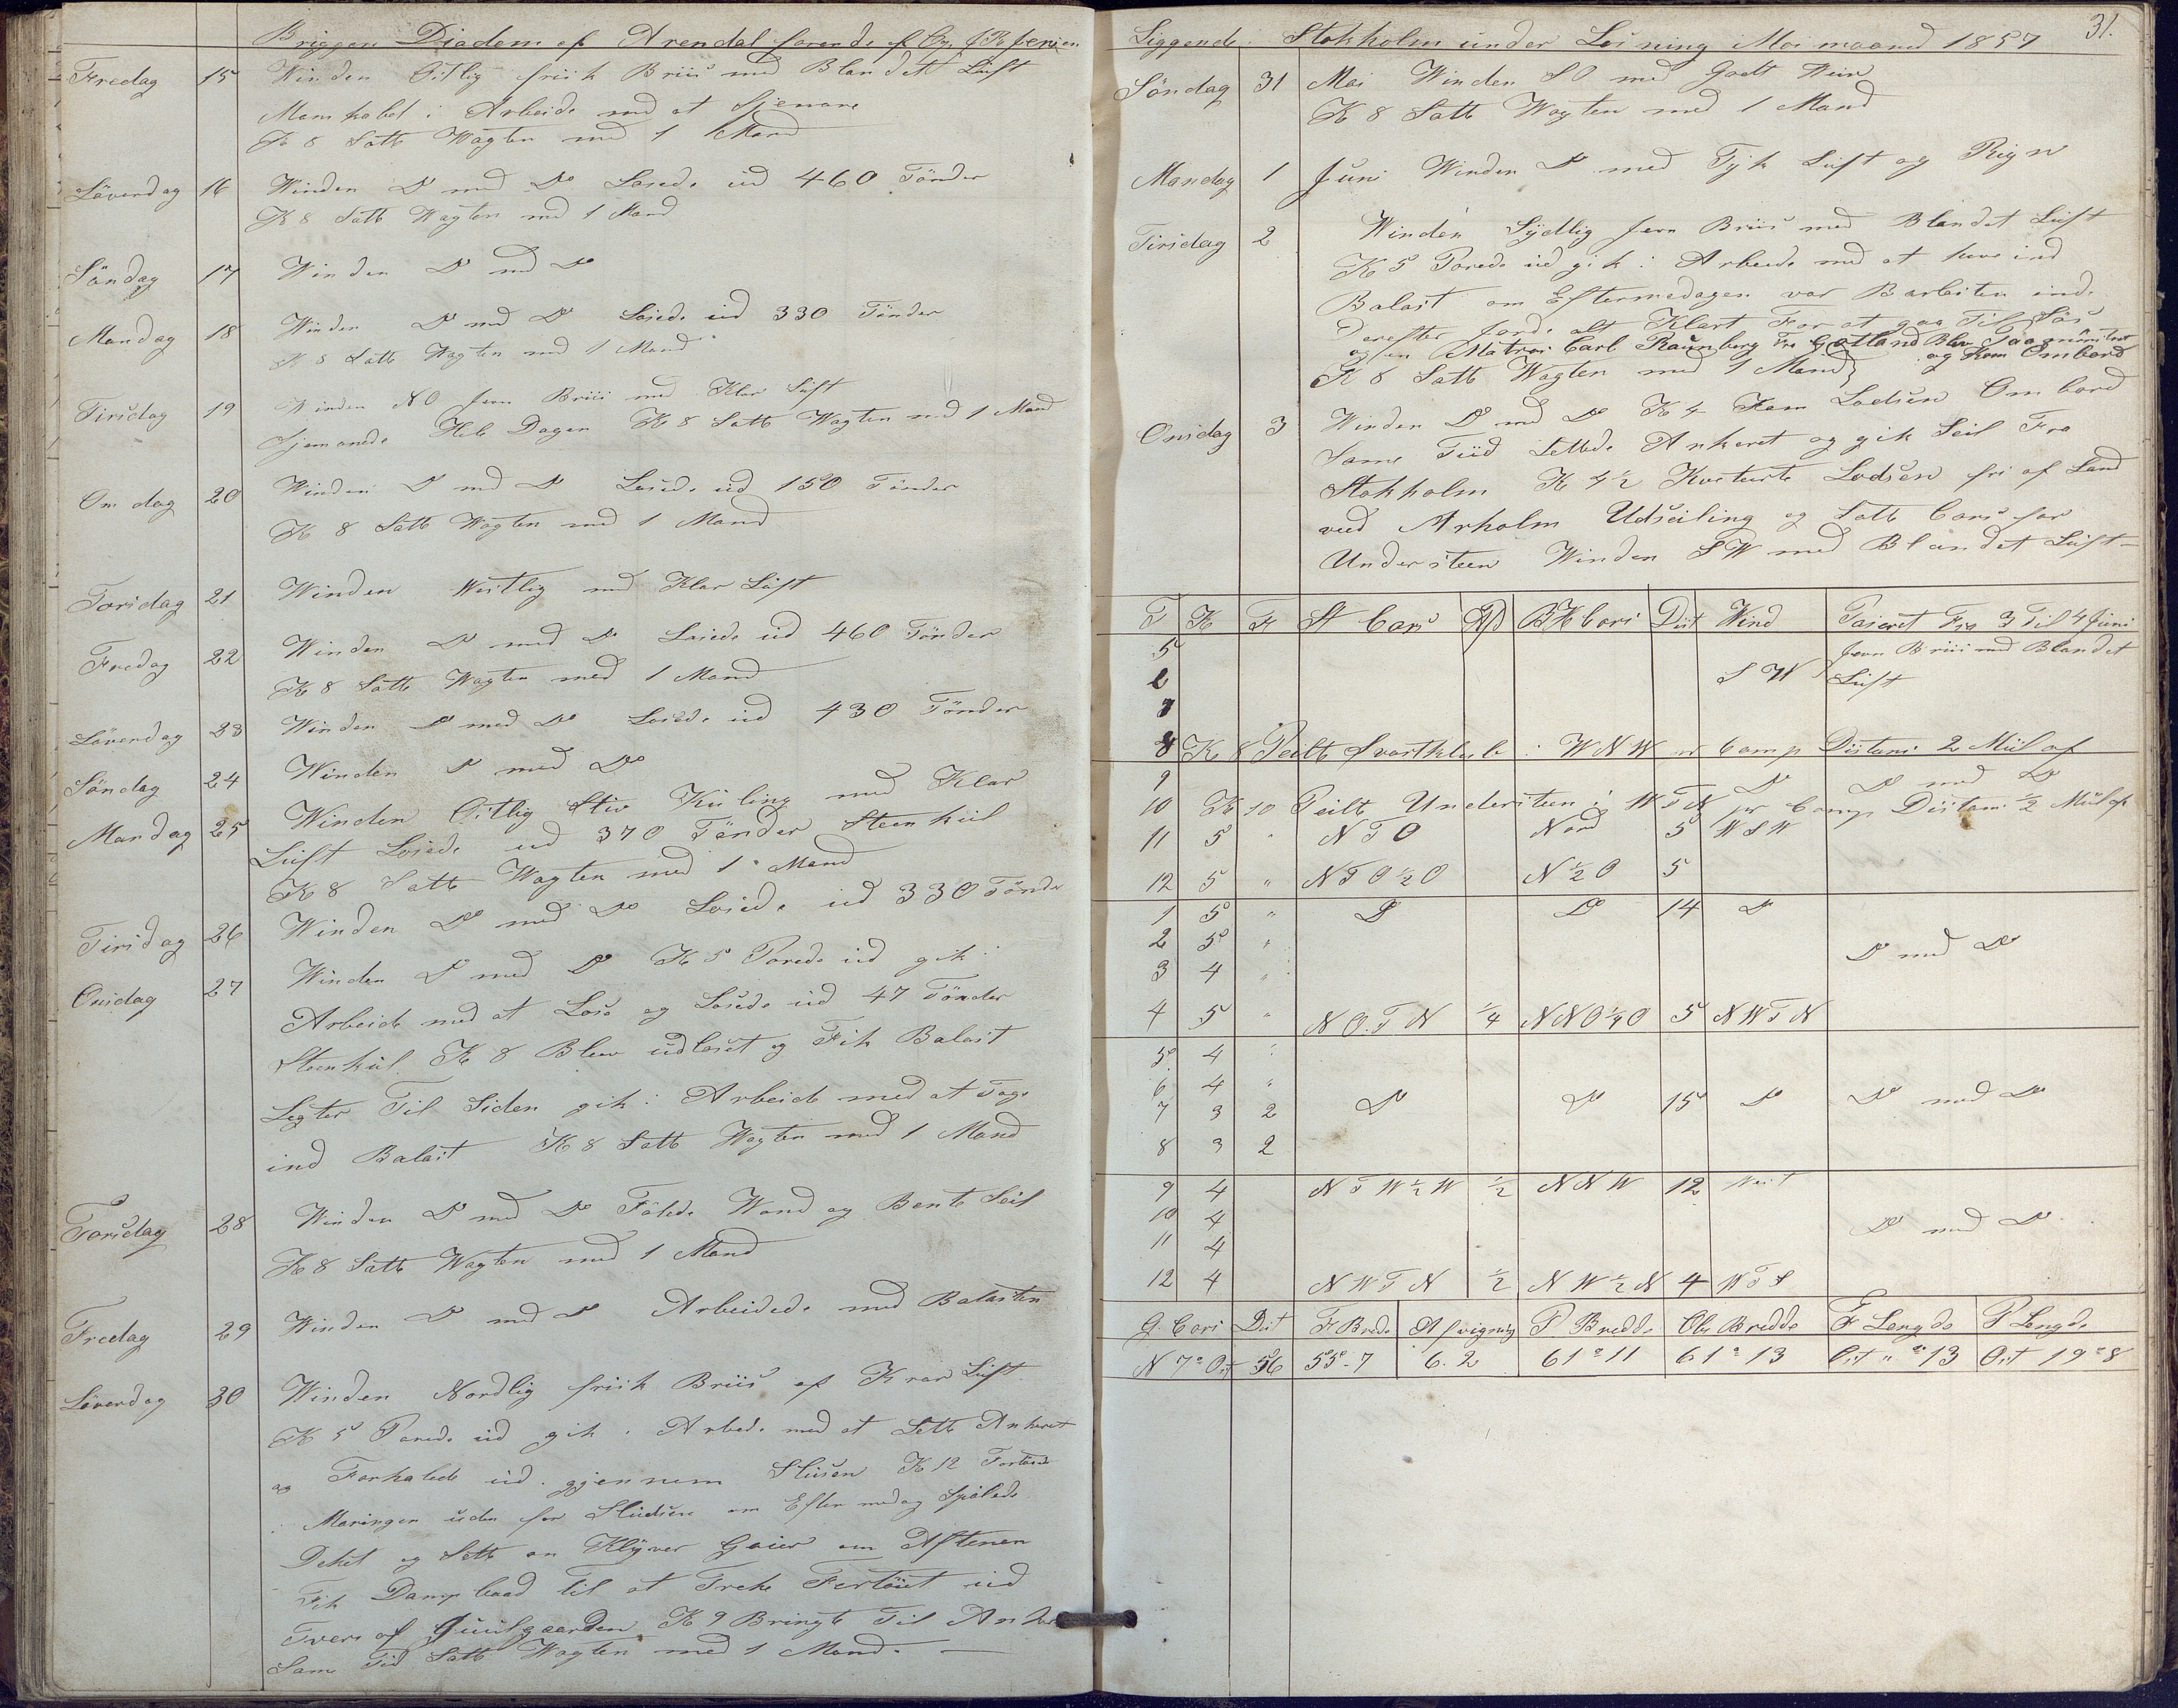 Briggen Diadem af Arendal førende af Cap J R Jensen
Fredag 15 Winden Østlig frisk Briis med Blandett Luft
Manskabet i Arbeide med at
K 8 Satte Wagten med 1 Mand
Løverdag 16 Winden Do med Do Losede ud 460 Tønder
K 8 Satte Wagten med 1 Mand
Søndag 17 Winden Do med Do
Mandag 18 Winden Do med Do Losede ud 330 Tønder
K 8 Satte Wagten med 1 Mand
Tirsdag 19 Winden NO jevn Briis med Klar Luft
Hele Dagen K 8 Satte Wagten med 1 Mand
Onsdag 20 Winden Do med Do Losede ud 150 Tønder
K 8 Satte Wagten med 1 Mand
Torsdag 21 Winden Westlig med Klar Luft
Fredag 22 Winden Do med Do Losede ud 460 Tønder
K 8 Satte Wagten med 1 Mand
Løverdag 23 Winden Do med Do Losede ud 430 Tønder
Søndag 24 Winden Do med Do
Mandag 25 Winden Østlig Stiv Kuling med Klar
Luft Losede ud 370 Tønder Steenkul
K 8 Satte Wagten med 1 Mand
Tirsdag 26 Winden Do med Do Losede ud 330 Tønder
Onsdag 27 Winden Do med Do K 5 Porede ud gik i
Arbeide med at Lose og Losede ud 47 Tønder
Steenkul K 8 Blev udloset og Fik Balast
Legter Til Siden gik i Arbeide med at Tage
ind Balast K 8 Satte Wagten med 1 Mand
Torsdag 28 Winden Do med Do Wand og Bente Seil
K 8 Satte Wagten med 1 Mand
Fredag 29 Winden Do med Do Arbeidede med Balasten
Løverdag 30 Winden Nordlig frisk Briis af Krav Luft
K 5 Porede ud gik i Arbede med at Lette Ankeret
og Forhalede ud gjennem Slusen K 12
Maringen uden for Sludsen om Eftermedag Spølede
Deket og Satte an Klyver om Aftenen
Fik Dampbaad til at Treke Fertøiet ud
Tvers af K 9 Bringte Til Anker
Same Tid Satte Wagten med 1 Mand.
Liggende i Stokholm under Losning Mai maaned 1857 31.
Søndag 31 Mai Winden SO med Godt Weir
K 8 Satte Wagten med 1 Mand
Mandag 1 Juni Winden Do med Tyk Luft og Rign
Tirsdag 2 Winden Sydlig jevn Briis med Blandet Luft
K 5 Porede ud gik i Arbeide med at have ind
Balast om Eftermedagen var Barlasten inde
Derefter Klart For at gaa Til Søs
og en Matros Carl Raunberg fra Gotland Blev Paamønstret
og Kom Ombord
K 8 Satte Wagten med 1 Mand
Onsdag 3 Winden Do med Do K 4 Kom Lodsen Om bord
Same Tiid Lettede Ankeret og gik Seil Fra
Stokholm K 4½ Kveterte Lodsen fri af Land
ved Arholm Udseiling og Satte Cors for
Understeen Winden SW med Blandet Luft
T K F St Cors Afd BH Cors Dist Wind Paseret Fra 3 Til 4 Juni
5 jevn Briis med Blandet
6 SW Luft
7
8 K 8 Peilte Svartklub i WNW pr Comp Distans 2 Miil af
9 Do Do med Do
10 K 10 Peilte Understeen i WTN pr Comp Distans ½ Miil af
11 5 " NTO Nord 5 WSW
12 5 " NTO½O N½O 5
1 5 " Do Do 14 Do
2 5 "
3 4 " Do med Do
4 5 " NO.TN ¼ NNO¼O 5 NWTN
5 4 "
6 4 "
7 3 2 Do Do 15 Do Do med Do
8 3 2
9 4 NTW½W ½ NNW 12 West
10 4 Do med Do
11 4
12 4 NWTN ½ NW½N 4 WTS
G. Cors Dist F Brede Afvigning P Bredde Obs Bredde F Lengde P Lengde
N 7° Ost 56 55-7 6.2 61°11 61°13 Ost "°13 Ost 19°8